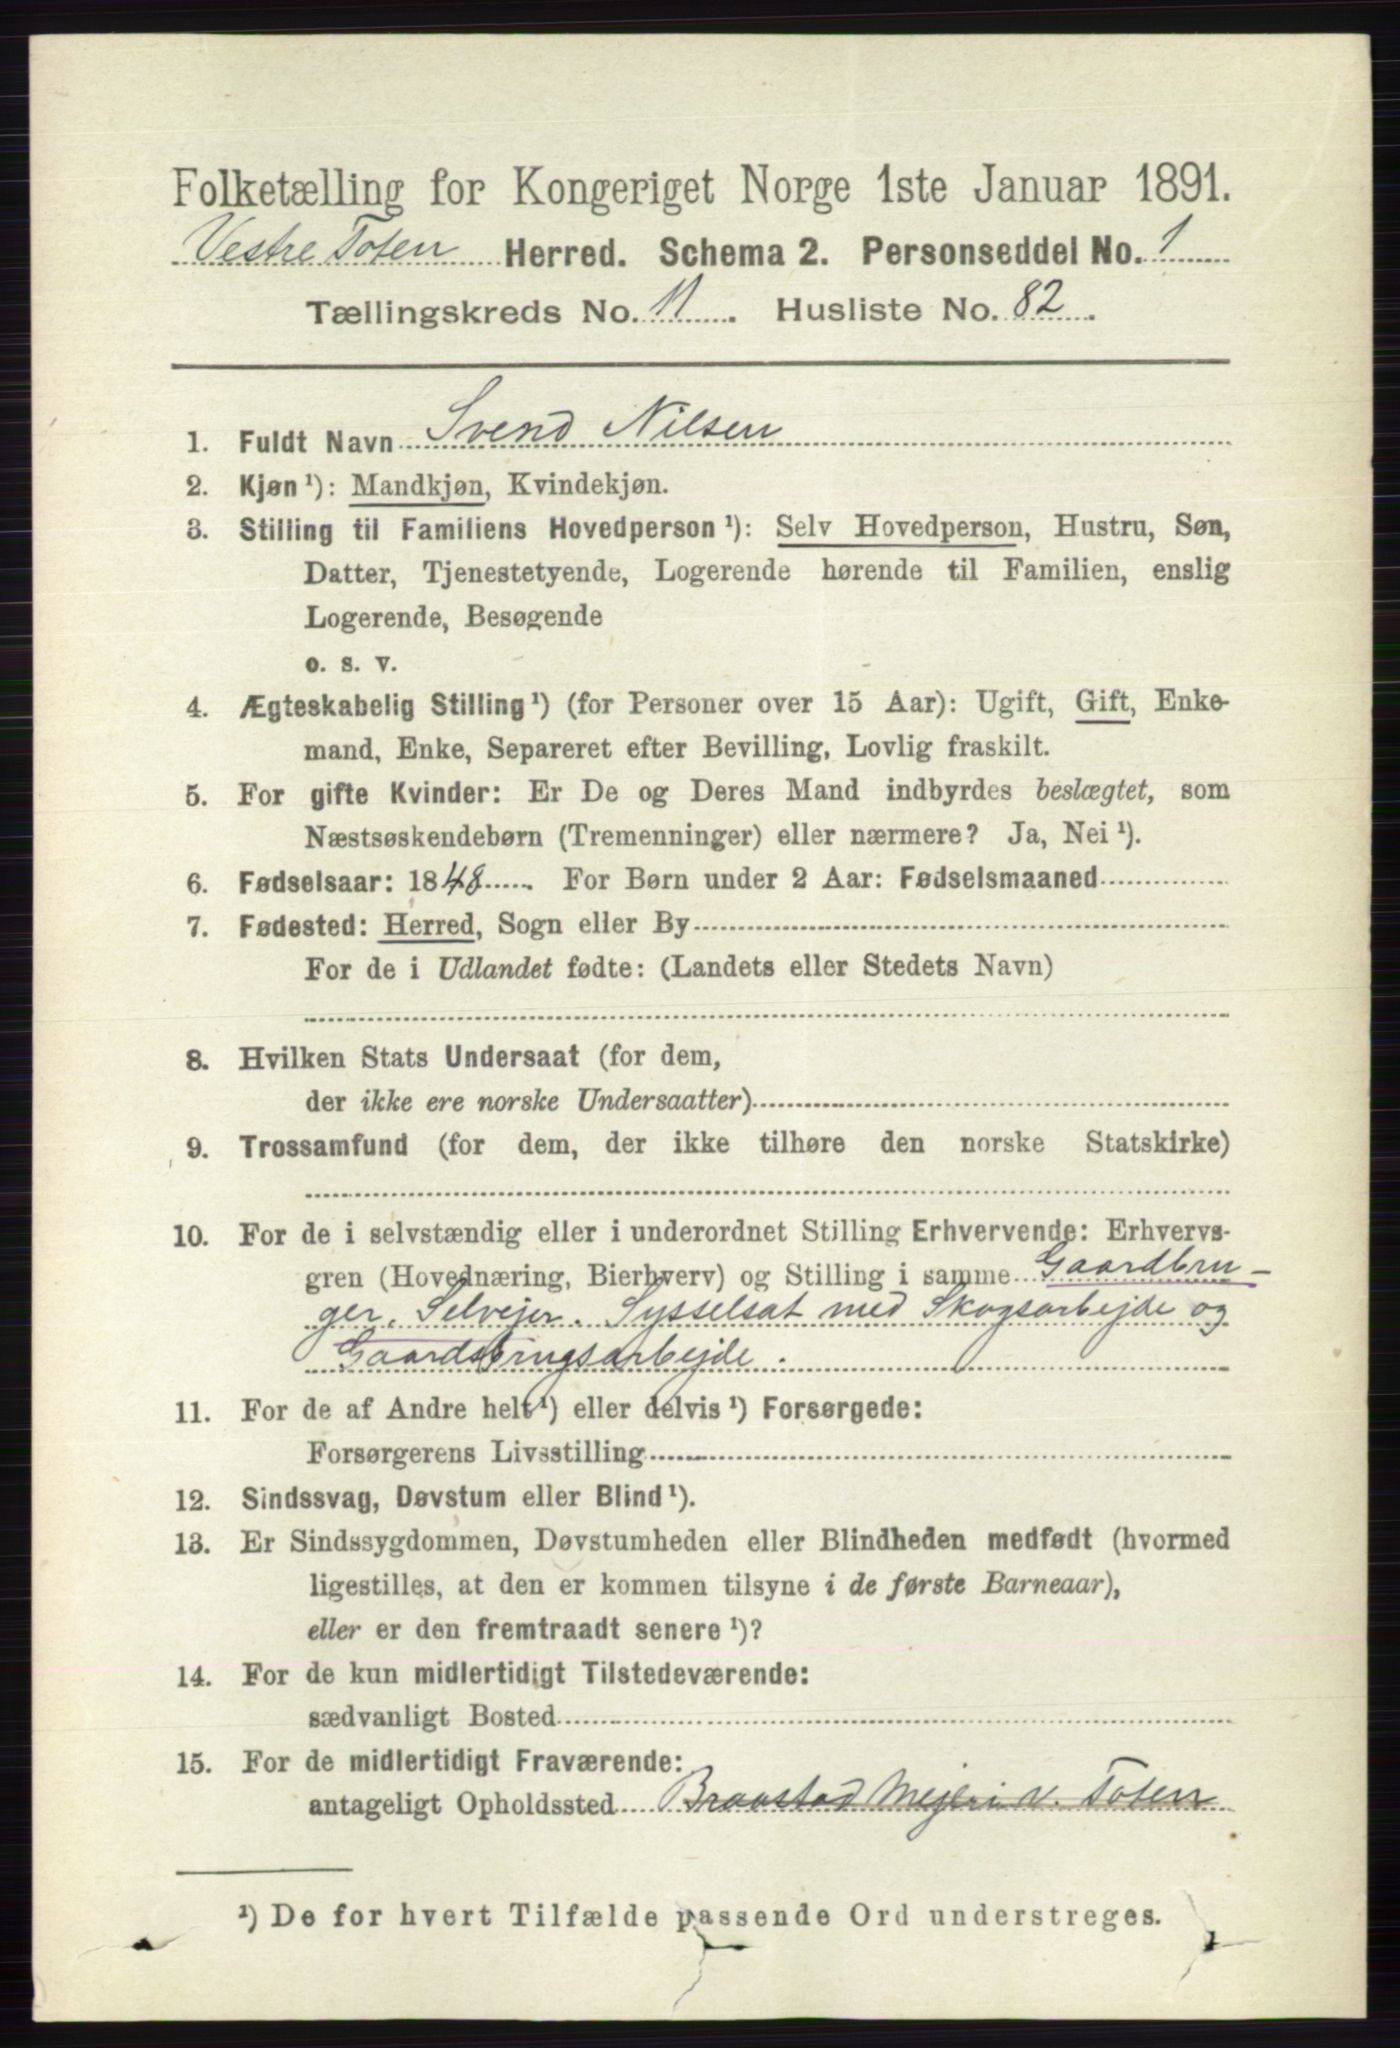 Folketælling for Kongeriget Norge 1ste Januar 1891.
Vestre Toten Herred. Schema 2. Personseddel No. 1
Tællingskreds No. 11. Husliste No. 82.
1. Fuldt Navn Svend Nilsen
2. Kjøn ¹): Mandkjøn, Kvindekjøn.
3. Stilling til Familiens Hovedperson ¹): Selv Hovedperson, Hustru, Søn,
Datter, Tjenestetyende, Logerende hørende til Familien, enslig
Logerende, Besøgende
o. s. v.
4. Ægteskabelig Stilling ¹) (for Personer over 15 Aar): Ugift, Gift, Enke-
mand, Enke, Separeret efter Bevilling, Lovlig fraskilt.
5. For gifte Kvinder: Er De og Deres Mand indbyrdes beslægtet, som
Næstsøskendebørn (Tremenninger) eller nærmere? Ja, Nei ¹).
6. Fødselsaar: 1848. For Børn under 2 Aar: Fødselsmaaned
7. Fødested: Herred, Sogn eller By
For de i Udlandet fødte: (Landets eller Stedets Navn)
8. Hvilken Stats Undersaat (for dem,
der ikke ere norske Undersaatter)
9. Trossamfund (for dem, der ikke tilhøre den norske Statskirke)
10. For de i selvstændig eller i underordnet Stilling Erhvervende: Erhvervs-
gren (Hovednæring, Bierhverv) og Stilling i samme Gaardbru-
ger, Selvejer. Sysselsat med Skogsarbejde og
Gaardsbrugsarbejde.
11. For de af Andre helt ¹) eller delvis ¹) Forsørgede:
Forsørgerens Livsstilling
12. Sindssvag, Døvstum eller Blind ¹).
13. Er Sindssygdommen, Døvstumheden eller Blindheden medfødt (hvormed
ligestilles, at den er kommen tilsyne i de første Barneaar),
eller er den fremtraadt senere ¹)?
14. For de kun midlertidigt Tilstedeværende:
sædvanligt Bosted
15. For de midlertidigt Fraværende:
antageligt Opholdssted Braastad Mejeri v. Toten
¹) De for hvert Tilfælde passende Ord understreges.